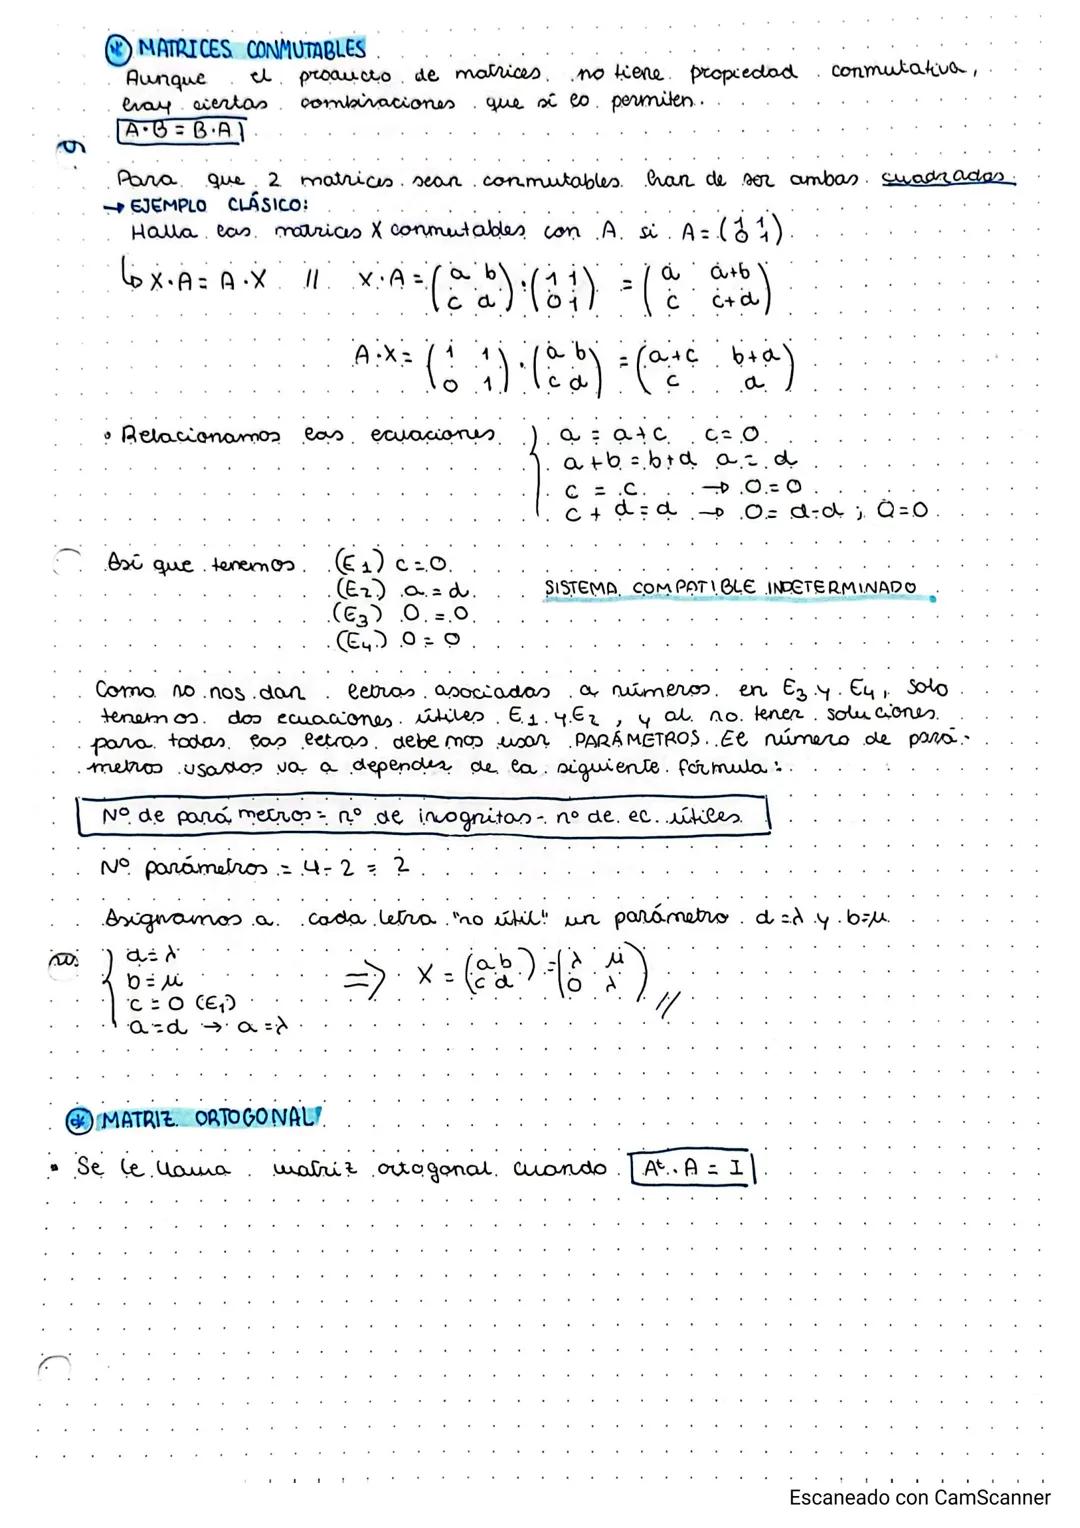 * MATRICES CONMUTABLES
Aunque el producto de matrices no tiene propiedad conmutativa,
hay ciertas combinaciones que sí lo permiten.
A·B = B·A
Para que 2 matrices sean conmutables han de ser ambas cuadradas.
→ EJEMPLO CLÁSICO:
Halla las matrices X conmutables con A si A = (1 1 / 0 1)
↳ X·A = A·X // X·A = (a b / c d) · (1 1 / 0 1) = (a a+b / c c+d)
A·X = (1 1 / 0 1) · (a b / c d) = (a+c b+d / c d)
• Relacionamos las ecuaciones { a = a+c c=0
a+b = b+d a = d
c = c → 0=0
c + d = d → 0 = d-d ; 0=0
Así que tenemos (E1) c=0
(E2) a=d
(E3) 0=0
(E4) 0=0
SISTEMA COMPATIBLE INDETERMINADO
Como no nos dan letras asociadas a números en E3 y E4, solo
tenemos dos ecuaciones útiles E1 y E2, y al no tener soluciones
para todas las letras debemos usar PARÁMETROS. El número de pará-
metros usados va a depender de la siguiente fórmula:
Nº de parámetros = nº de incognitas - nº de ec. útiles
Nº parámetros = 4-2 = 2
Asignamos a cada letra "no útil" un parámetro d=λ y b=μ
{ d=λ
b=μ
c=0 (E1)
a=d → a=λ
⇒ X = (a b / c d) = (λ μ / 0 λ) //
* MATRIZ ORTOGONAL
• Se le llama matriz ortogonal cuando Aᵗ·A = I
Escaneado con CamScanner